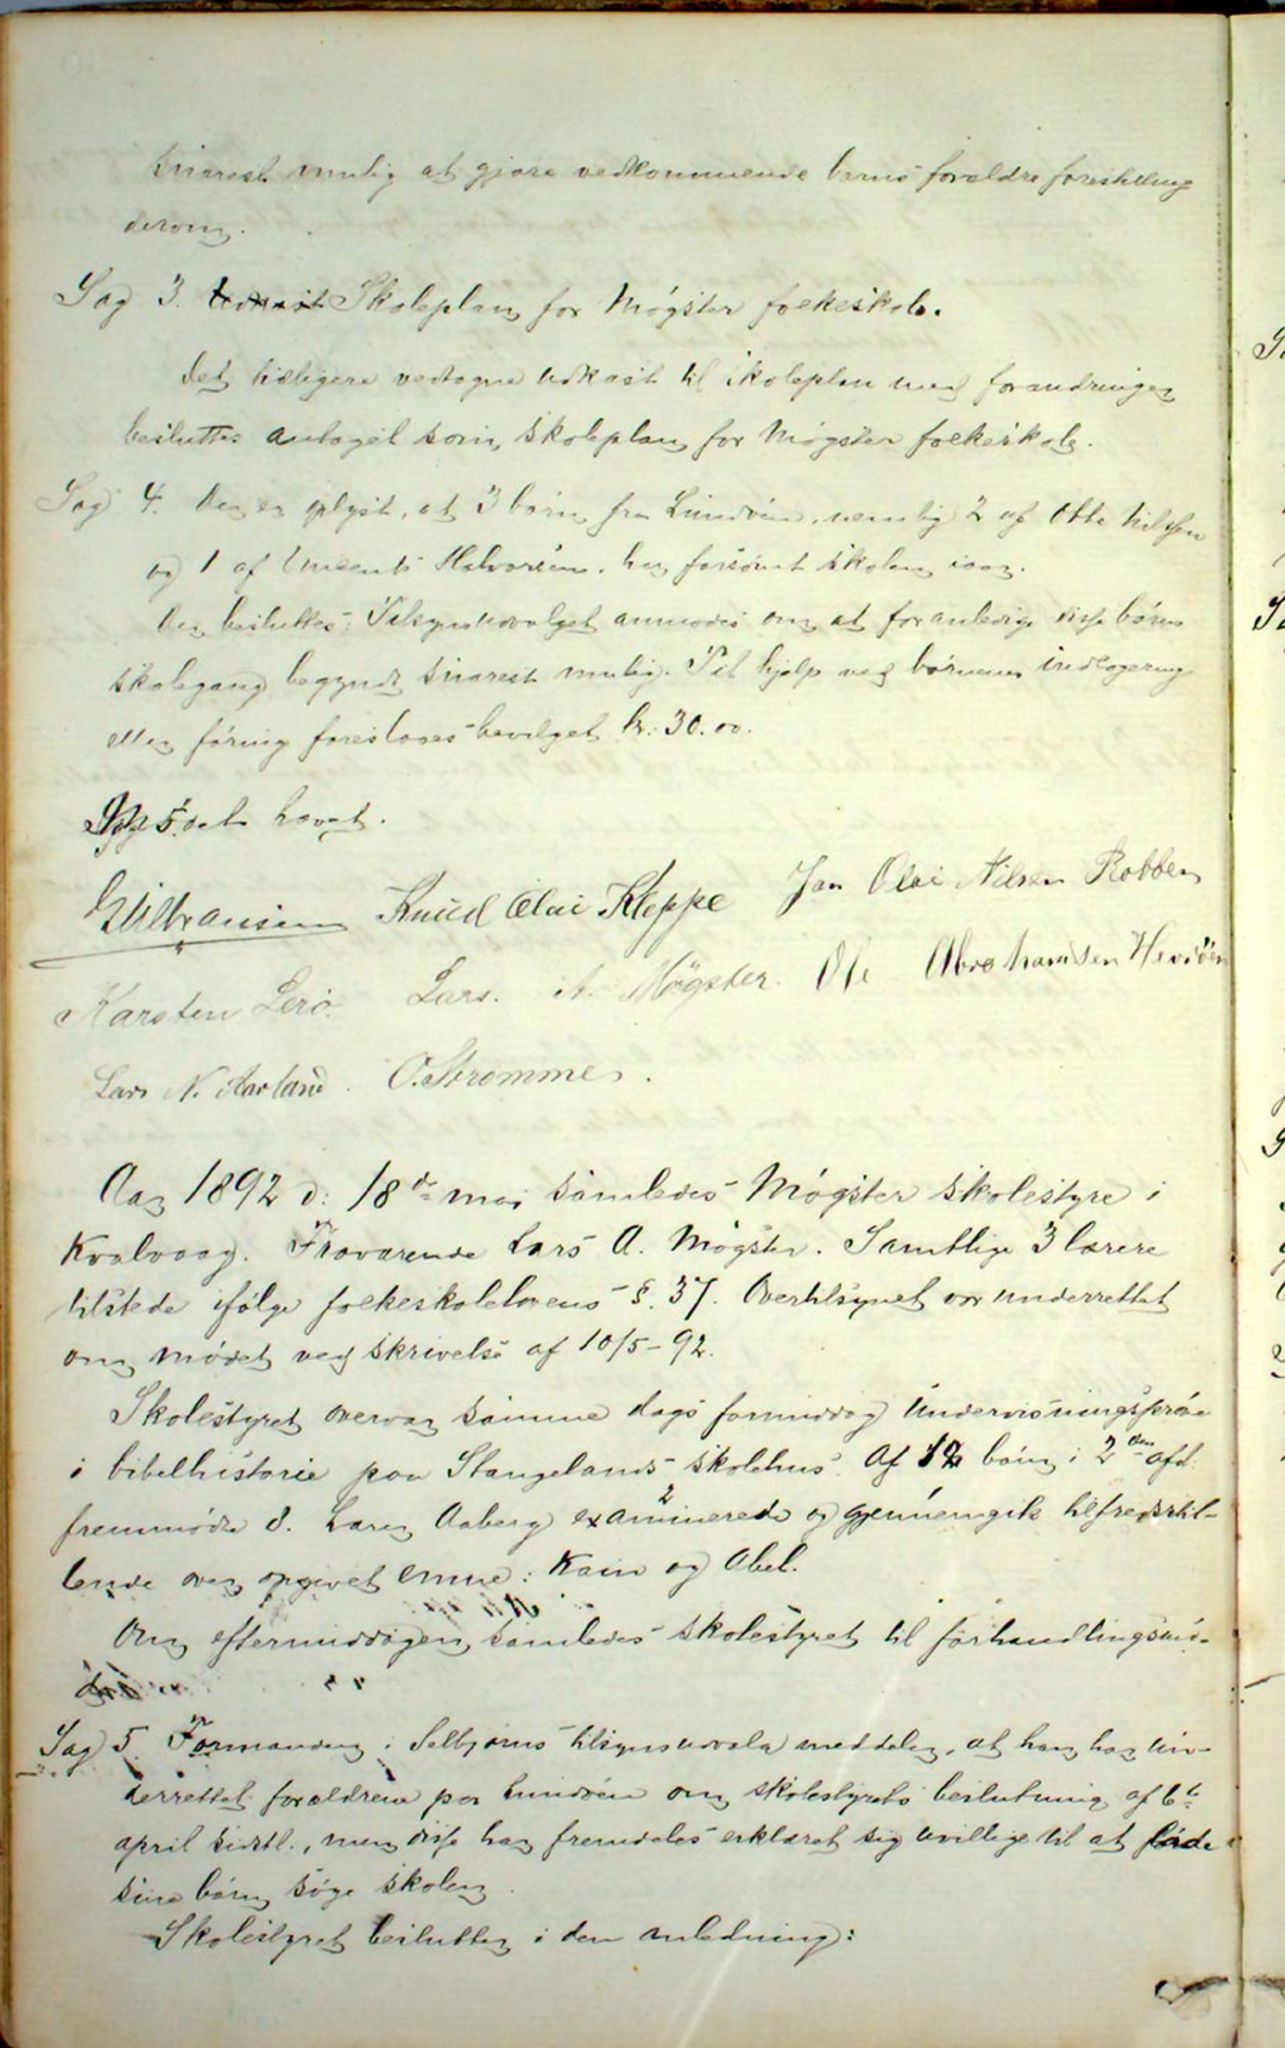 snarest mulig at gjøre vedkommende barns forældre forestilling
derom.
Sag 3. Skoleplan for Møgster folkeskole.
Det tidligere vedtagne udkast til skoleplan med forandringer
besluttes antaget som skoleplan for Møgster folkeskole.
Sag 4. Der er oplyst, at 3 børn fra Lundøen, nemlig 2 af Otto Nilssen
og 1 af Halvorsen, har forsømt skolen iaar.
Der besluttes: Tilsynsudvalget anmodes om at foranledige disse børns
skolegang begyndt snarest mulig. Til hjælp ved børnenes indlogering
eller føring foreslaaes bevilget kr. 30.00.
hævet.
Knud Olai Kleppe Jan Olai Nilsen Robben
Karsten Lerø. Lars. A. Møgster. Ole Abrahamsen Hevrøen
Lars N. Aarland. O. Strømme.
Aar 1892 d: 18de mai samledes Møgster skolestyre i
Kvalvaag. Fraværende Lars A. Møgster. Samtlige 3 lærere
tilstede ifølge folkeskolelovens §. 37. Overtilsynet var underrettet
om mødet ved skrivelse af 10/5-92.
Skolestyret overvar samme dags formiddag undervisningsprøve
i bibelhistorie paa Stangelands skolehus. Af 12 børn i 2den afd.
fremmødte 8. Lærer Aaberg examinerede og gjennemgik tilfredsstil-
lende over opgivet emne: Kain og Abel.
Om eftermiddagen samledes skolestyret til forhandlingsmø-
de
Sag 5. Formanden i Selbjørns tilsynsudvalg meddeler, at han har un-
derrettet forældrene paa Lundøen om skolestyrets beslutning af 6te
april sidstl., men disse har fremdeles erklæret sig uvillige til at lade
sine børn søge skolen.
Skolestyret beslutter i den anledning: